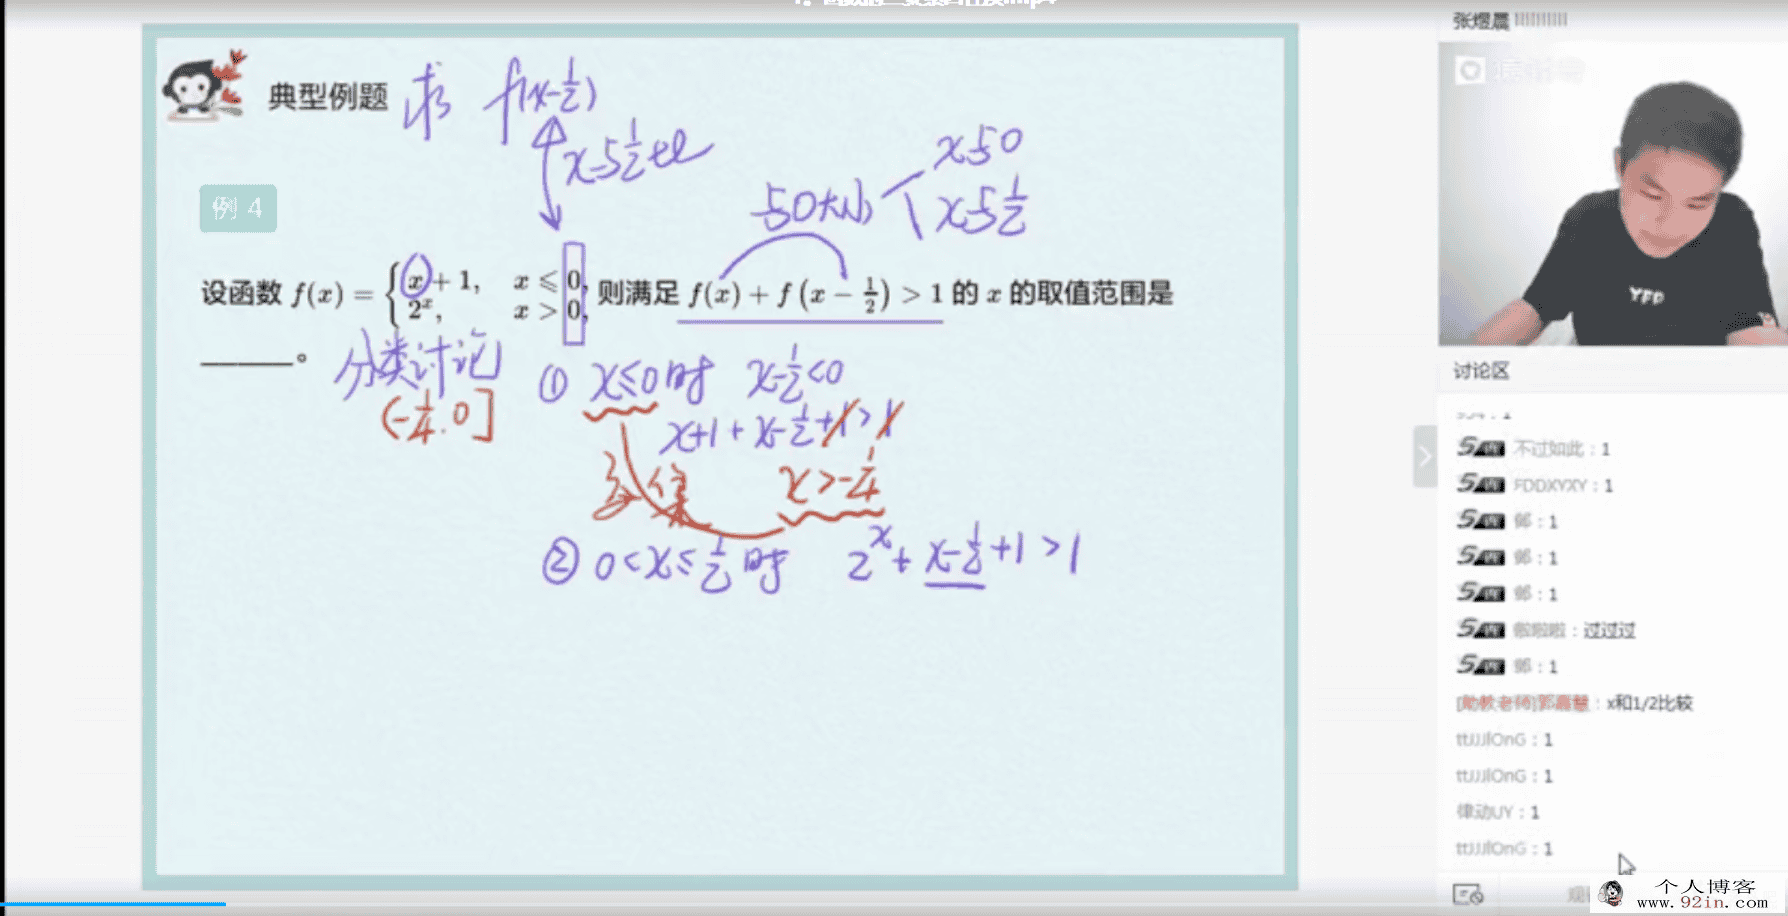 张煜晨
典型例题 求 f(x-1/2)
x与1/2比
与0大小
x与0
x与1/2
例 4
设函数 f(x) = { x + 1, x ⩽ 0, 2^x, x > 0, 则满足 f(x) + f(x − 1/2) > 1 的 x 的取值范围是
______。
分类讨论
(-1/4, 0]
① x≤0时 x-1/2<0
x+1+x-1/2+1>1
交集 x>-1/4
② 0<x≤1/2时 2^x+x-1/2+1>1
YFD
讨论区
不过如此：1
FDDXYXY：1
郭：1
郭：1
郭：1
啦啦啦：过过过
郭：1
[助教老师]郭嘉慧：x和1/2比较
ttJJJlOnG：1
ttJJJlOnG：1
律动UY：1
ttJJJlOnG：1
个人博客
www.92in.com